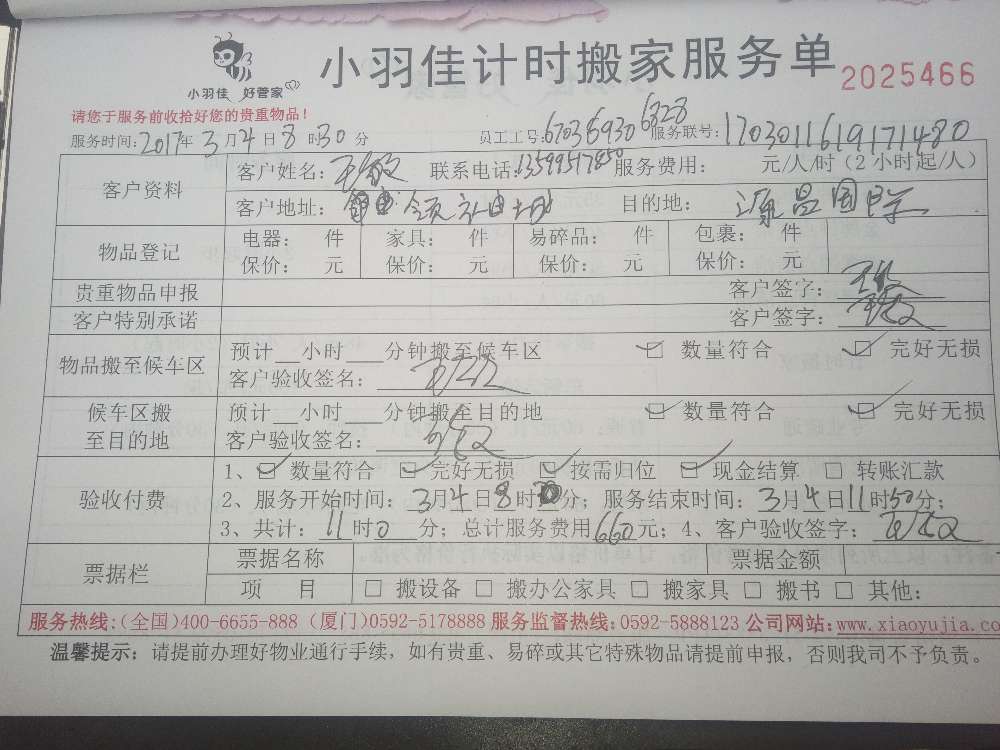 小羽佳计时搬家服务单
2025466
小羽佳 好管家
请您于服务前收拾好您的贵重物品!
服务时间:2017年3月4日8时30分 员工工号:67036930 6828 服务联号:1703011619171480
客户资料 客户姓名:王敏 联系电话:13599517850 服务费用: 元/人/时(2小时起/人)
客户地址: 目的地:源昌国
物品登记 电器: 件 家具: 件 易碎品: 件 包裹: 件
保价: 元 保价: 元 保价: 元 保价: 元
贵重物品申报 客户签字:王敏
客户特别承诺 客户签字:王敏
物品搬至候车区 预计__小时___分钟搬至候车区 ☑ 数量符合 ☑ 完好无损
客户验收签名:王敏
候车区搬至目的地 预计__小时___分钟搬至目的地 ☑ 数量符合 ☑ 完好无损
客户验收签名:王敏
验收付费 1、☑ 数量符合 ☑ 完好无损 ☑ 按需归位 ☑ 现金结算 □ 转账汇款
2、服务开始时间:3月4日8时30分;服务结束时间:3月4日11时50分;
3、共计:11时0分;总计服务费用660元;4、客户验收签字:王敏
票据栏 票据名称 票据金额
项 目 □ 搬设备 □ 搬办公家具 □ 搬家具 □ 搬书 □ 其他:
服务热线:(全国)400-6655-888 (厦门)0592-5178888 服务监督热线:0592-5888123 公司网站:www.xiaoyujia.co
温馨提示:请提前办理好物业通行手续,如有贵重、易碎或其它特殊物品请提前申报,否则我司不予负责。